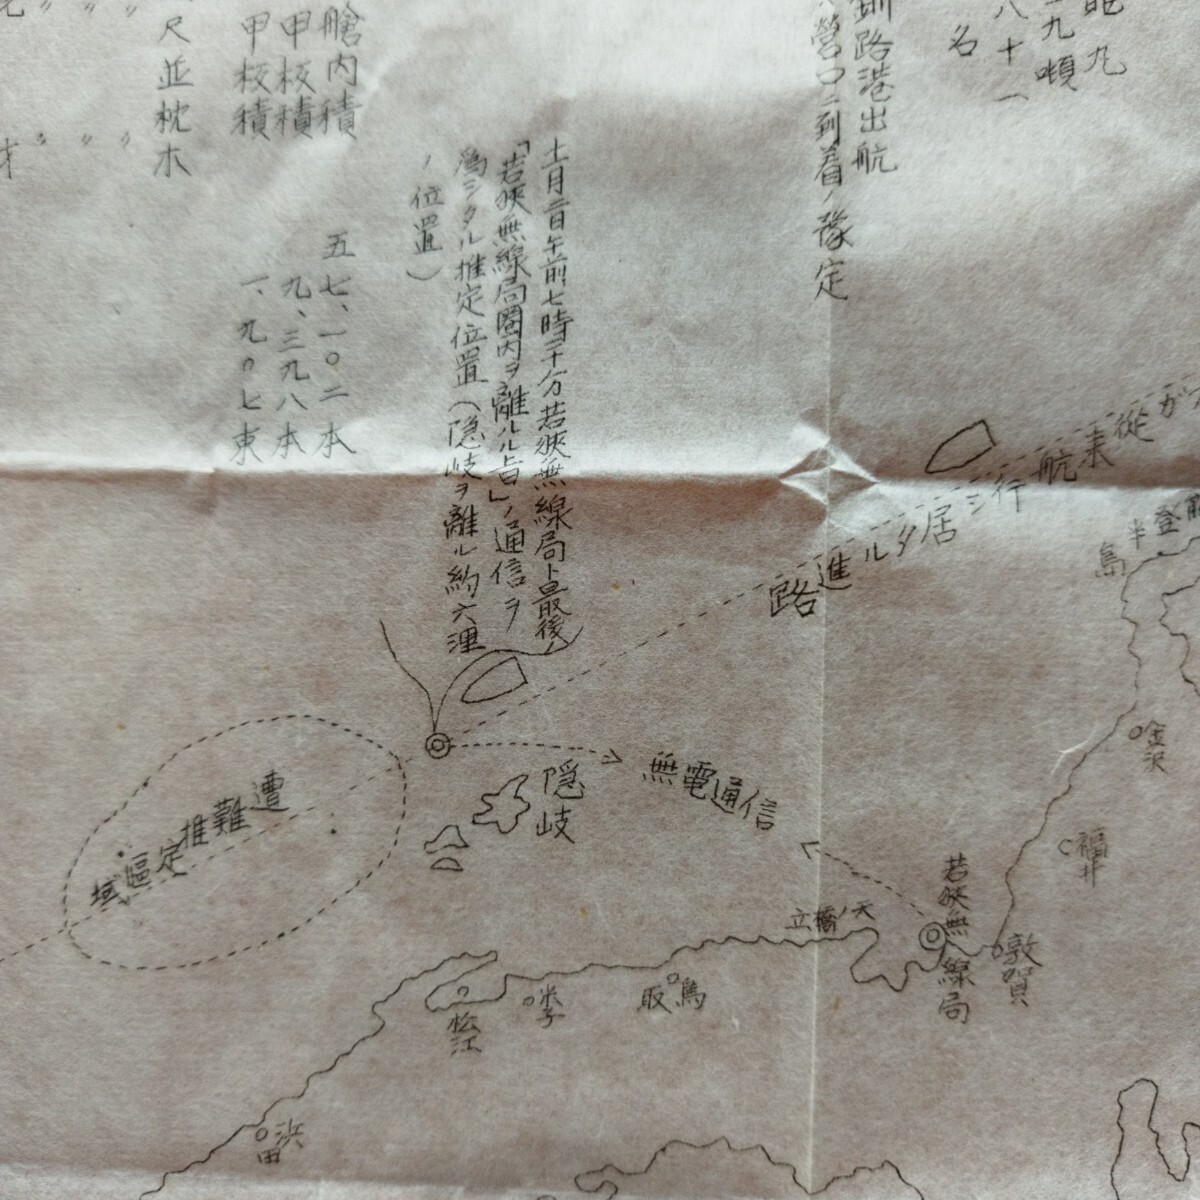 九
噸
八十一
名
釧路港出航
營口ニ到着ノ豫定
艙内積 五七、一〇二本
甲板積 九、三九八本
甲板積 一、九〇七束
尺並枕木
〃〃〃
才
午前七時二十分若狹無線局ト最後ノ
「若狹無線局圏内ヲ離ルル旨」ノ通信ヲ
為シタル推定位置(隠岐ヲ離ル約六浬
ノ位置)
從来航行シ居タル進路
登半島
金沢
福井
隠岐
無電通信
遭難推定區域
若狹無線局
敦賀
天ノ橋立
鳥取
米子
松江
浜田